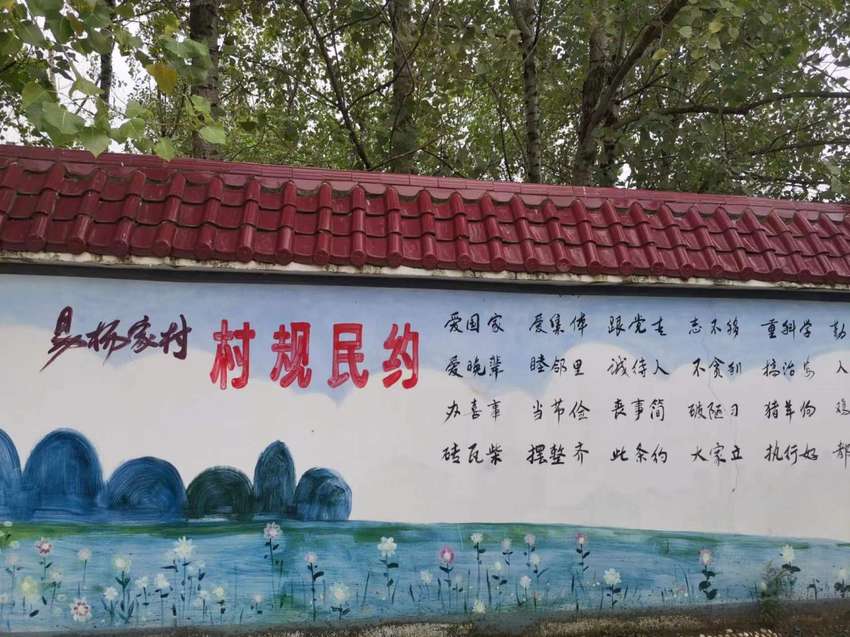 杨家村
村规民约
爱国家 爱集体 跟党走 志不移 重科学 勤
爱晚辈 睦邻里 诚待人 不贪利 搞治安 人
办喜事 当节俭 丧事简 破陋习 猪羊狗 鸡
砖瓦柴 摆整齐 此条约 大家立 执行好 都